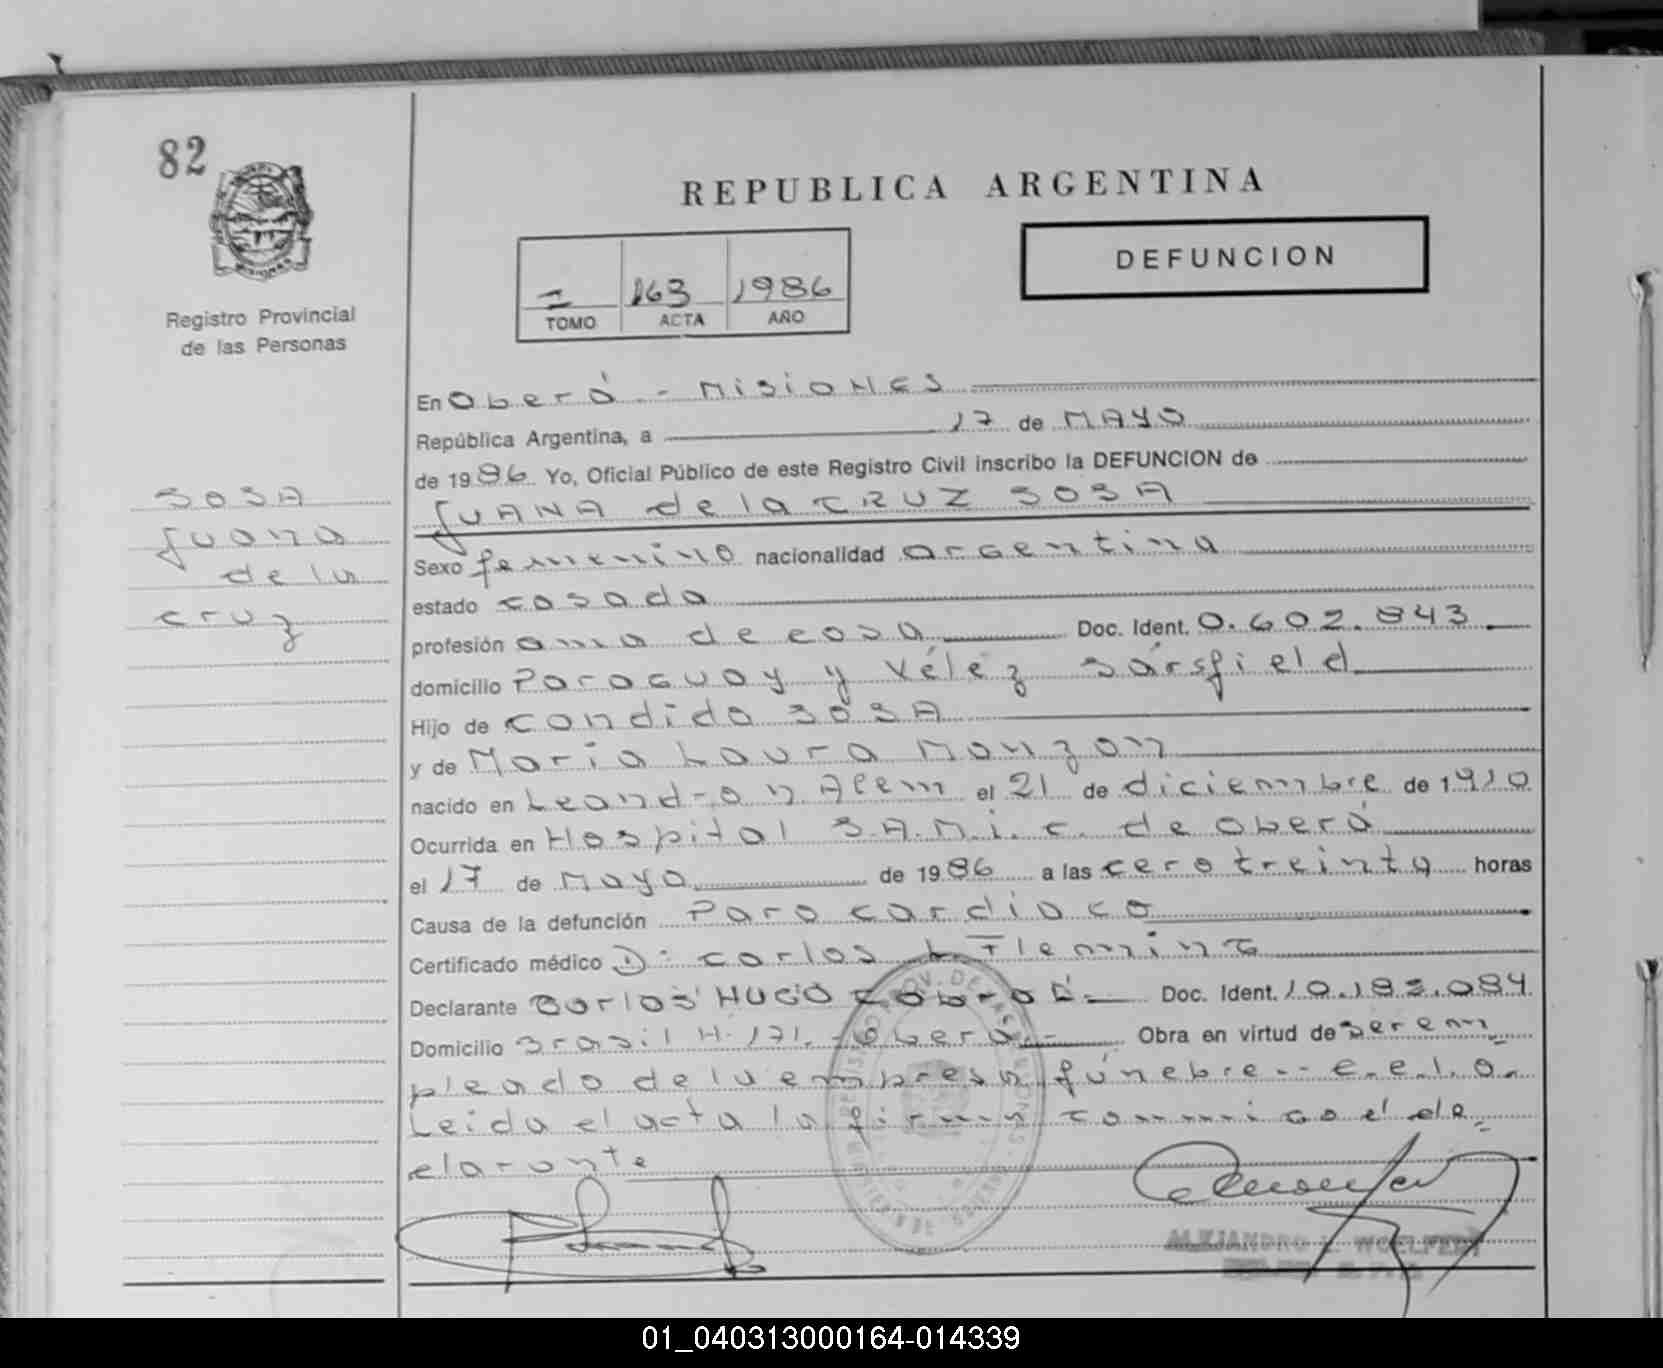 82
REPUBLICA ARGENTINA
DEFUNCION
I 163 1986
TOMO ACTA AÑO
Registro Provincial
de las Personas
SOSA
Juana
de la
cruz
En Oberá - Misiones
República Argentina, a 17 de MAYO
de 1986 Yo, Oficial Público de este Registro Civil inscribo la DEFUNCION de
JUANA de la CRUZ SOSA
Sexo femenino nacionalidad argentina
estado casada
profesión ama de casa Doc. Ident. 0.602.843
domicilio Paraguay y Vélez Sársfield
Hijo de Candido SOSA
y de Maria Laura Monzon
nacido en Leandro N. Alem el 21 de diciembre de 1910
Ocurrida en Hospital S.A.M.i.c. de Oberá
el 17 de Mayo de 1986 a las cero treinta horas
Causa de la defunción Paro cardiaco
Certificado médico Dr. Carlos L Fleming
Declarante Carlos HUGO Doc. Ident. 10.182.084
Domicilio Brasil N. 171. - Oberá.- Obra en virtud de ser em
pleado de la empresa fúnebre.- e.e.l.a.
Leida el acta la firma conmigo el de
clarante
ALEJANDRO L. WOELFERT
01_040313000164-014339